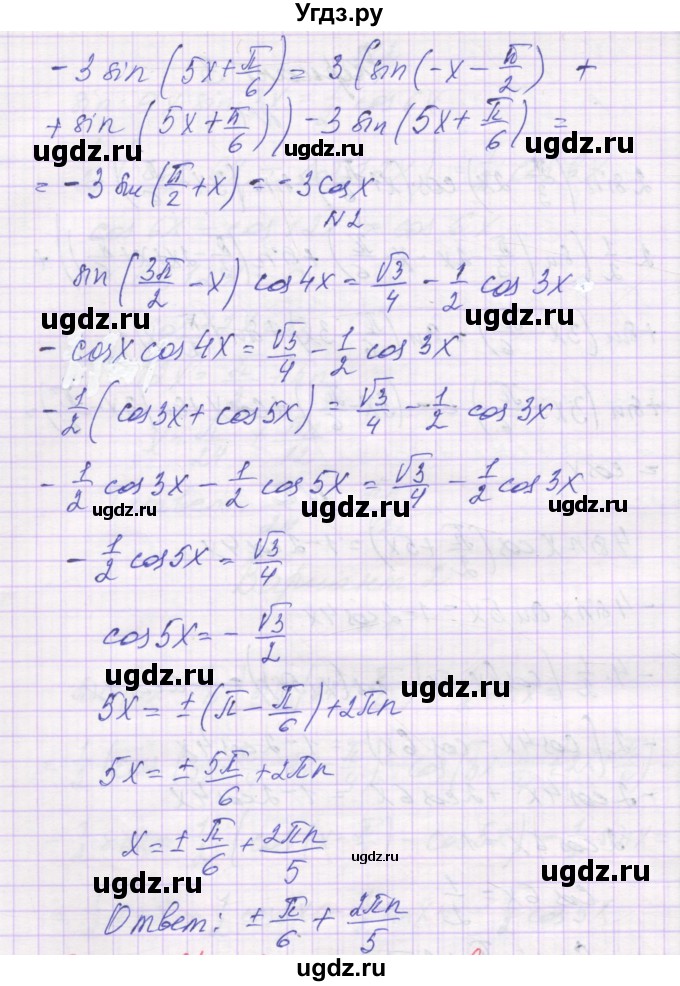 Угдз.ру
- 3 sin (5x + π/6) = 3 (sin(-x - π/2) +
+ sin (5x + π/6)) - 3 sin(5x + π/6) =
ugdz.ru ugdz.ru ugdz.ru
= - 3 sin (π/2 + x) = - 3 cos x
N2
sin (3π/2 - x) cos 4x = √3/4 - 1/2 cos 3x
ugdz.ru ugdz.ru
- cos x cos 4x = √3/4 - 1/2 cos 3x
ugdz.ru
- 1/2 (cos 3x + cos 5x) = √3/4 - 1/2 cos 3x
ugdz.ru
- 1/2 cos 3x - 1/2 cos 5x = √3/4 - 1/2 cos 3x
ugdz.ru ugdz.ru ugdz.ru
- 1/2 cos 5x = √3/4
ugdz.ru
cos 5x = - √3/2
ugdz.ru
5x = ± (π - π/6) + 2πn
ugdz.ru
5x = ± 5π/6 + 2πn
ugdz.ru
x = ± π/6 + 2πn/5
ugdz.ru ugdz.ru
ugdz.ru
Ответ: ± π/6 + 2πn/5
ugdz.ru ugdz.ru
ugdz.ru